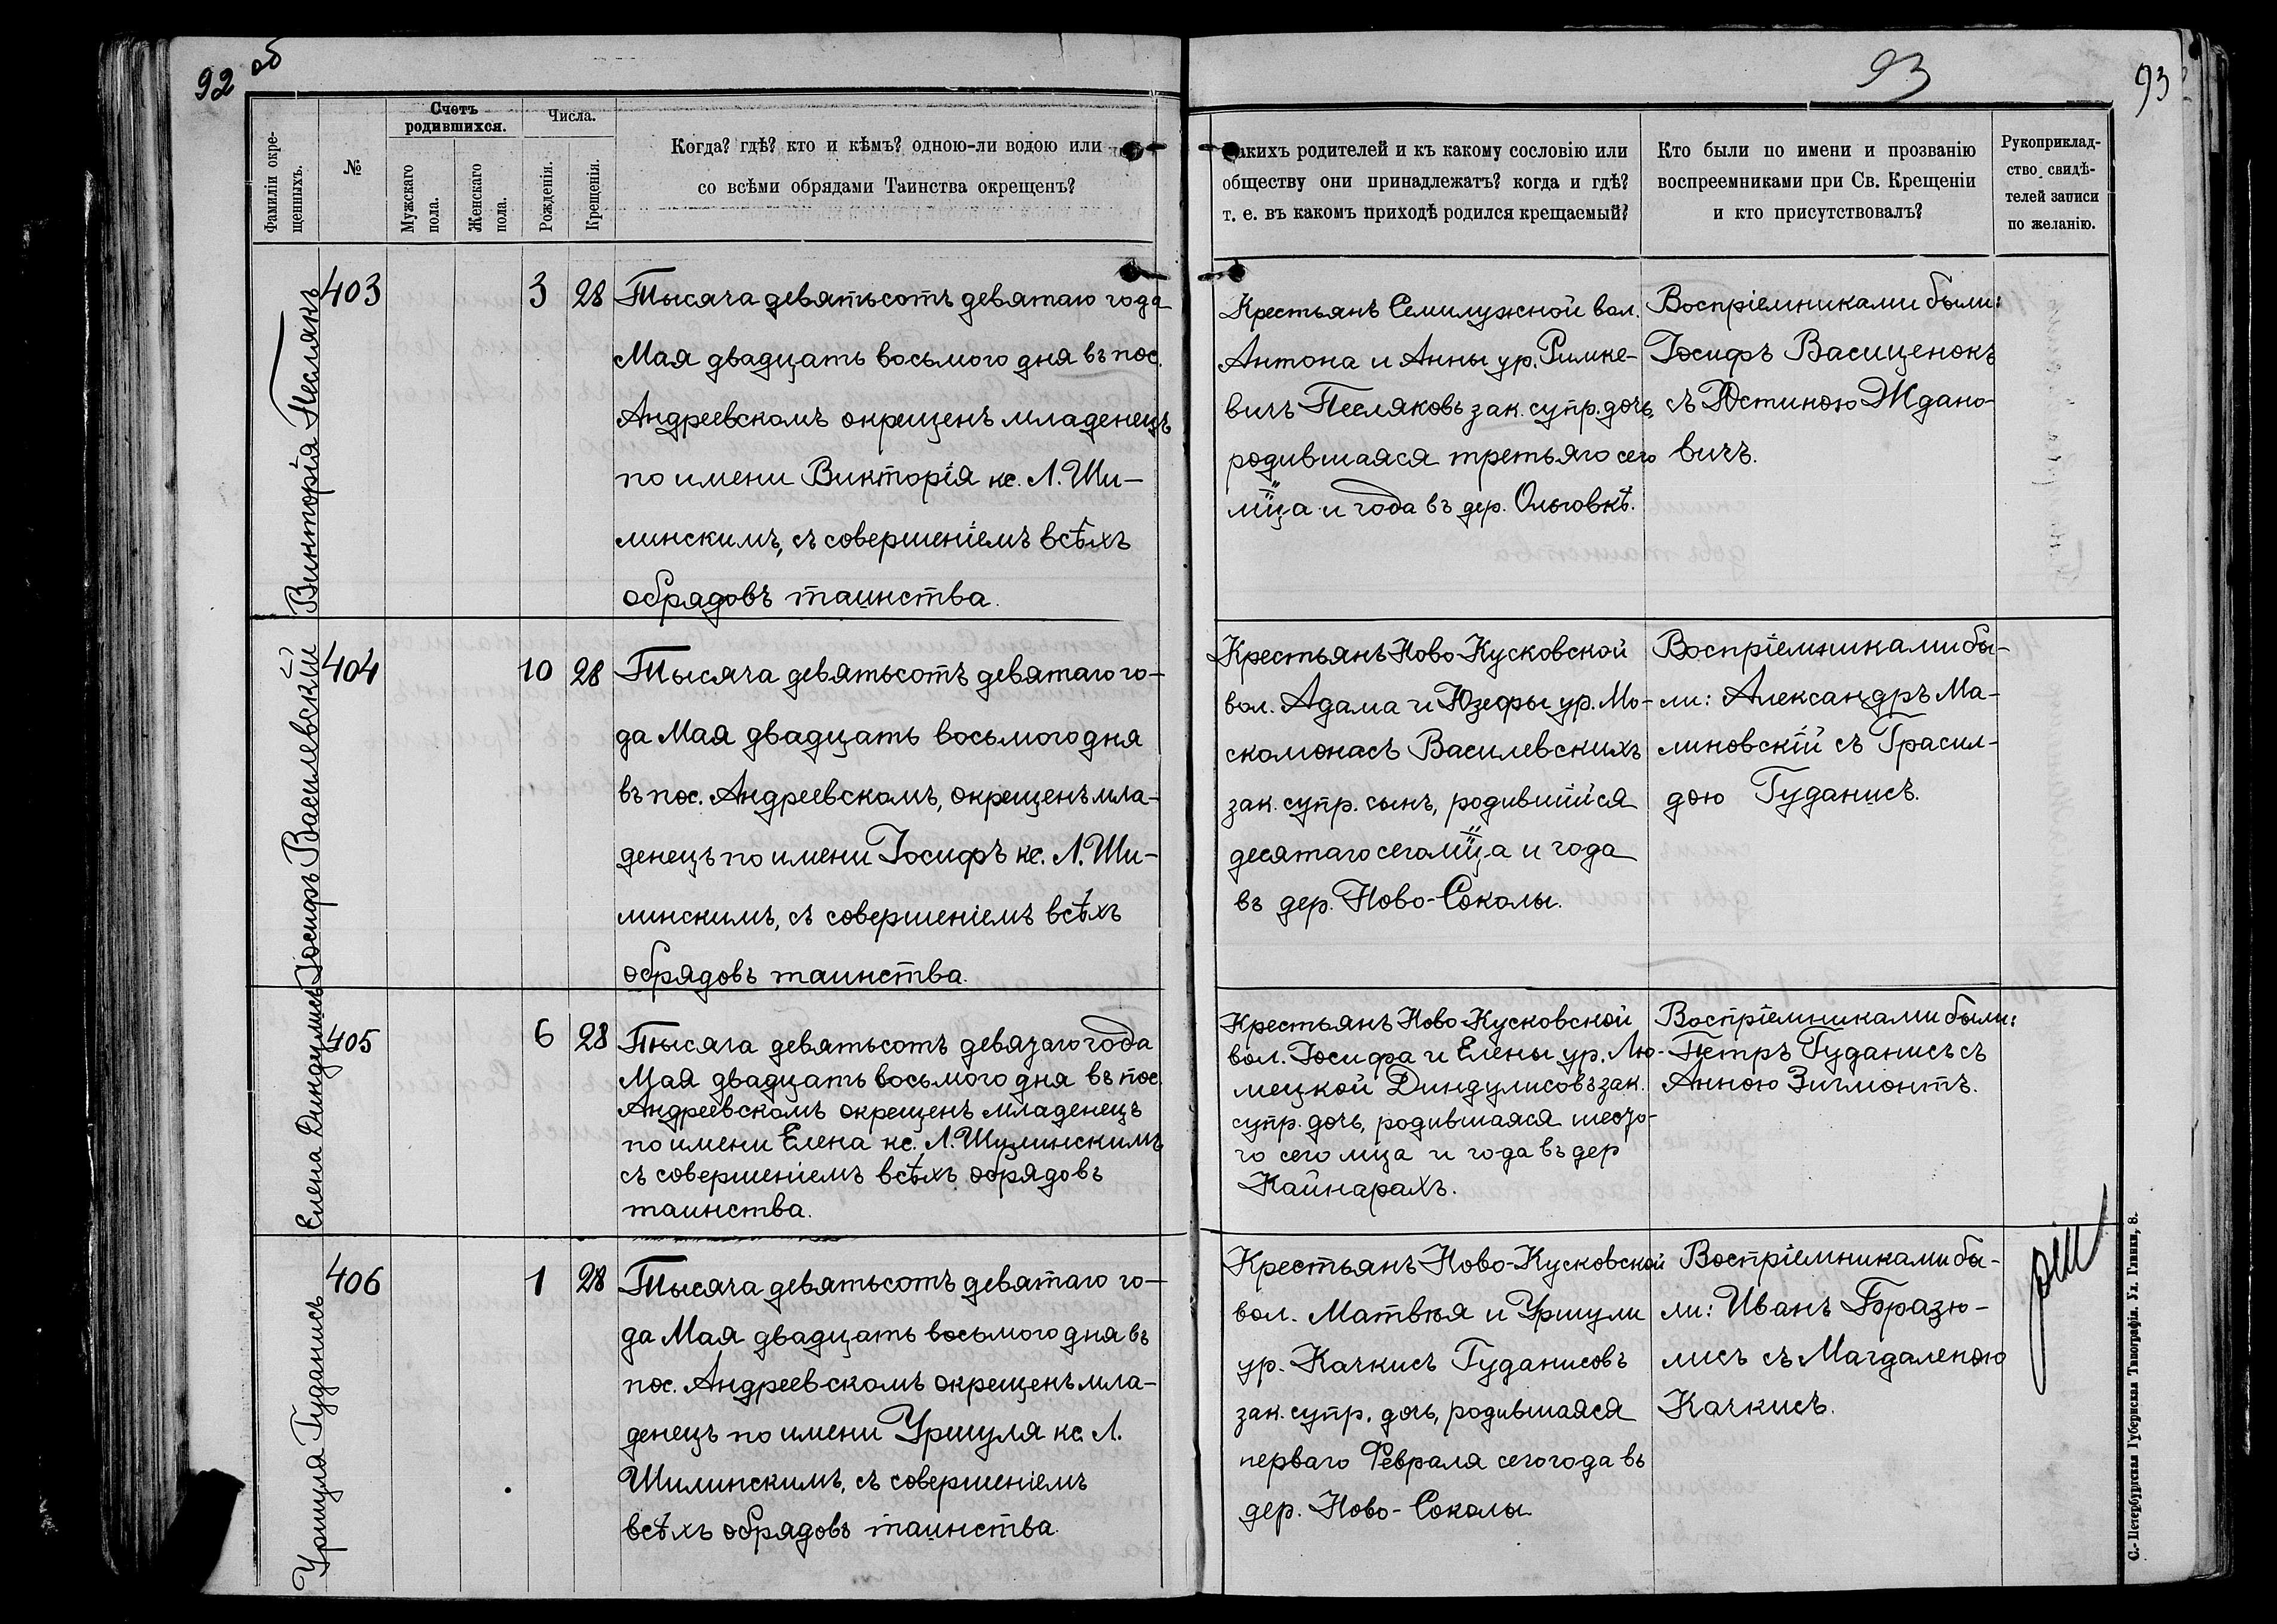 92 об
93
93
Фамиліи окре-
щенныхъ.
№
Счетъ
родившихся.
Мужскаго
пола.
Женскаго
пола.
Числа.
Рожденія.
Крещенія.
Когда? гдѣ? кто и кѣмъ? одною-ли водою или
со всѣми обрядами Таинства окрещенъ?
какихъ родителей и къ какому сословію или
обществу они принадлежатъ? когда и гдѣ?
т. е. въ какомъ приходѣ родился крещаемый?
Кто были по имени и прозванію
воспреемниками при Св. Крещеніи
и кто присутствовалъ?
Рукоприклад-
ство свидѣ-
телей записи
по желанію.
Викторія Песлякъ
403
3
28
Тысяча девятьсотъ девятаго года
Мая двадцать восьмого дня въ пос.
Андреевскомъ окрещенъ младенецъ
по имени Викторія кс. Л. Ши-
линскимъ, съ совершеніемъ всѣхъ
обрядовъ таинства.
Крестьянъ Семилужной вол.
Антона и Анны ур. Римке-
вичъ Песляковъ зак. супр. дочь,
родившаяся третьяго сего
мца и года въ дер. Ольговкѣ.
Воспріемниками были:
Іосифъ Васиценокъ
съ Юстиною Ждано-
вичъ.
Іосифъ Василевскій
404
10
28
Тысяча девятьсотъ девятаго го-
да Мая двадцать восьмого дня
въ пос. Андреевскомъ, окрещенъ мла-
денецъ по имени Іосифъ кс. Л. Ши-
линскимъ, съ совершеніемъ всѣхъ
обрядовъ таинства.
Крестьянъ Ново-Кусковской
вол. Адама и Юзефы ур. Мо-
скомонасъ Василевскихъ
зак. супр. сынъ, родившійся
десятаго сего мца и года
въ дер. Ново-Соколы.
Воспріемниками бы-
ли: Александръ Ма-
линовскій съ Грасил-
дою Гуданисъ.
Елена Диндулисъ
405
6
28
Тысяча девятьсотъ девятаго года
Мая двадцать восьмого дня въ пос.
Андреевскомъ окрещенъ младенецъ
по имени Елена кс. Л. Шилинскимъ
съ совершеніемъ всѣхъ обрядовъ
таинства.
Крестьянъ Ново-Кусковской
вол. Іосифа и Елены ур. Лю-
мецкой Диндулисовъ зак.
супр. дочь, родившаяся шесто-
го сего мца и года въ дер
Кайнарахъ.
Воспріемниками были:
Петръ Гуданисъ съ
Анною Зигмонтъ.
Уршуля Гуданисъ
406
1
28
Тысяча девятьсотъ девятаго го-
да Мая двадцать восьмого дня въ
пос. Андреевскомъ окрещенъ мла-
денецъ по имени Уршуля кс. Л.
Шилинскимъ, съ совершеніемъ
всѣхъ обрядовъ таинства.
Крестьянъ Ново-Кусковской
вол. Матвѣя и Уршули
ур. Качкисъ Гуданисовъ
зак. супр. дочь, родившаяся
перваго Февраля сего года въ
дер. Ново-Соколы
Воспріемниками бы-
ли: Иванъ Бразю-
лисъ съ Магдаленою
Качкисъ.
С.-Петербургская Губернская Типографія. Ул. Глинки, 8.